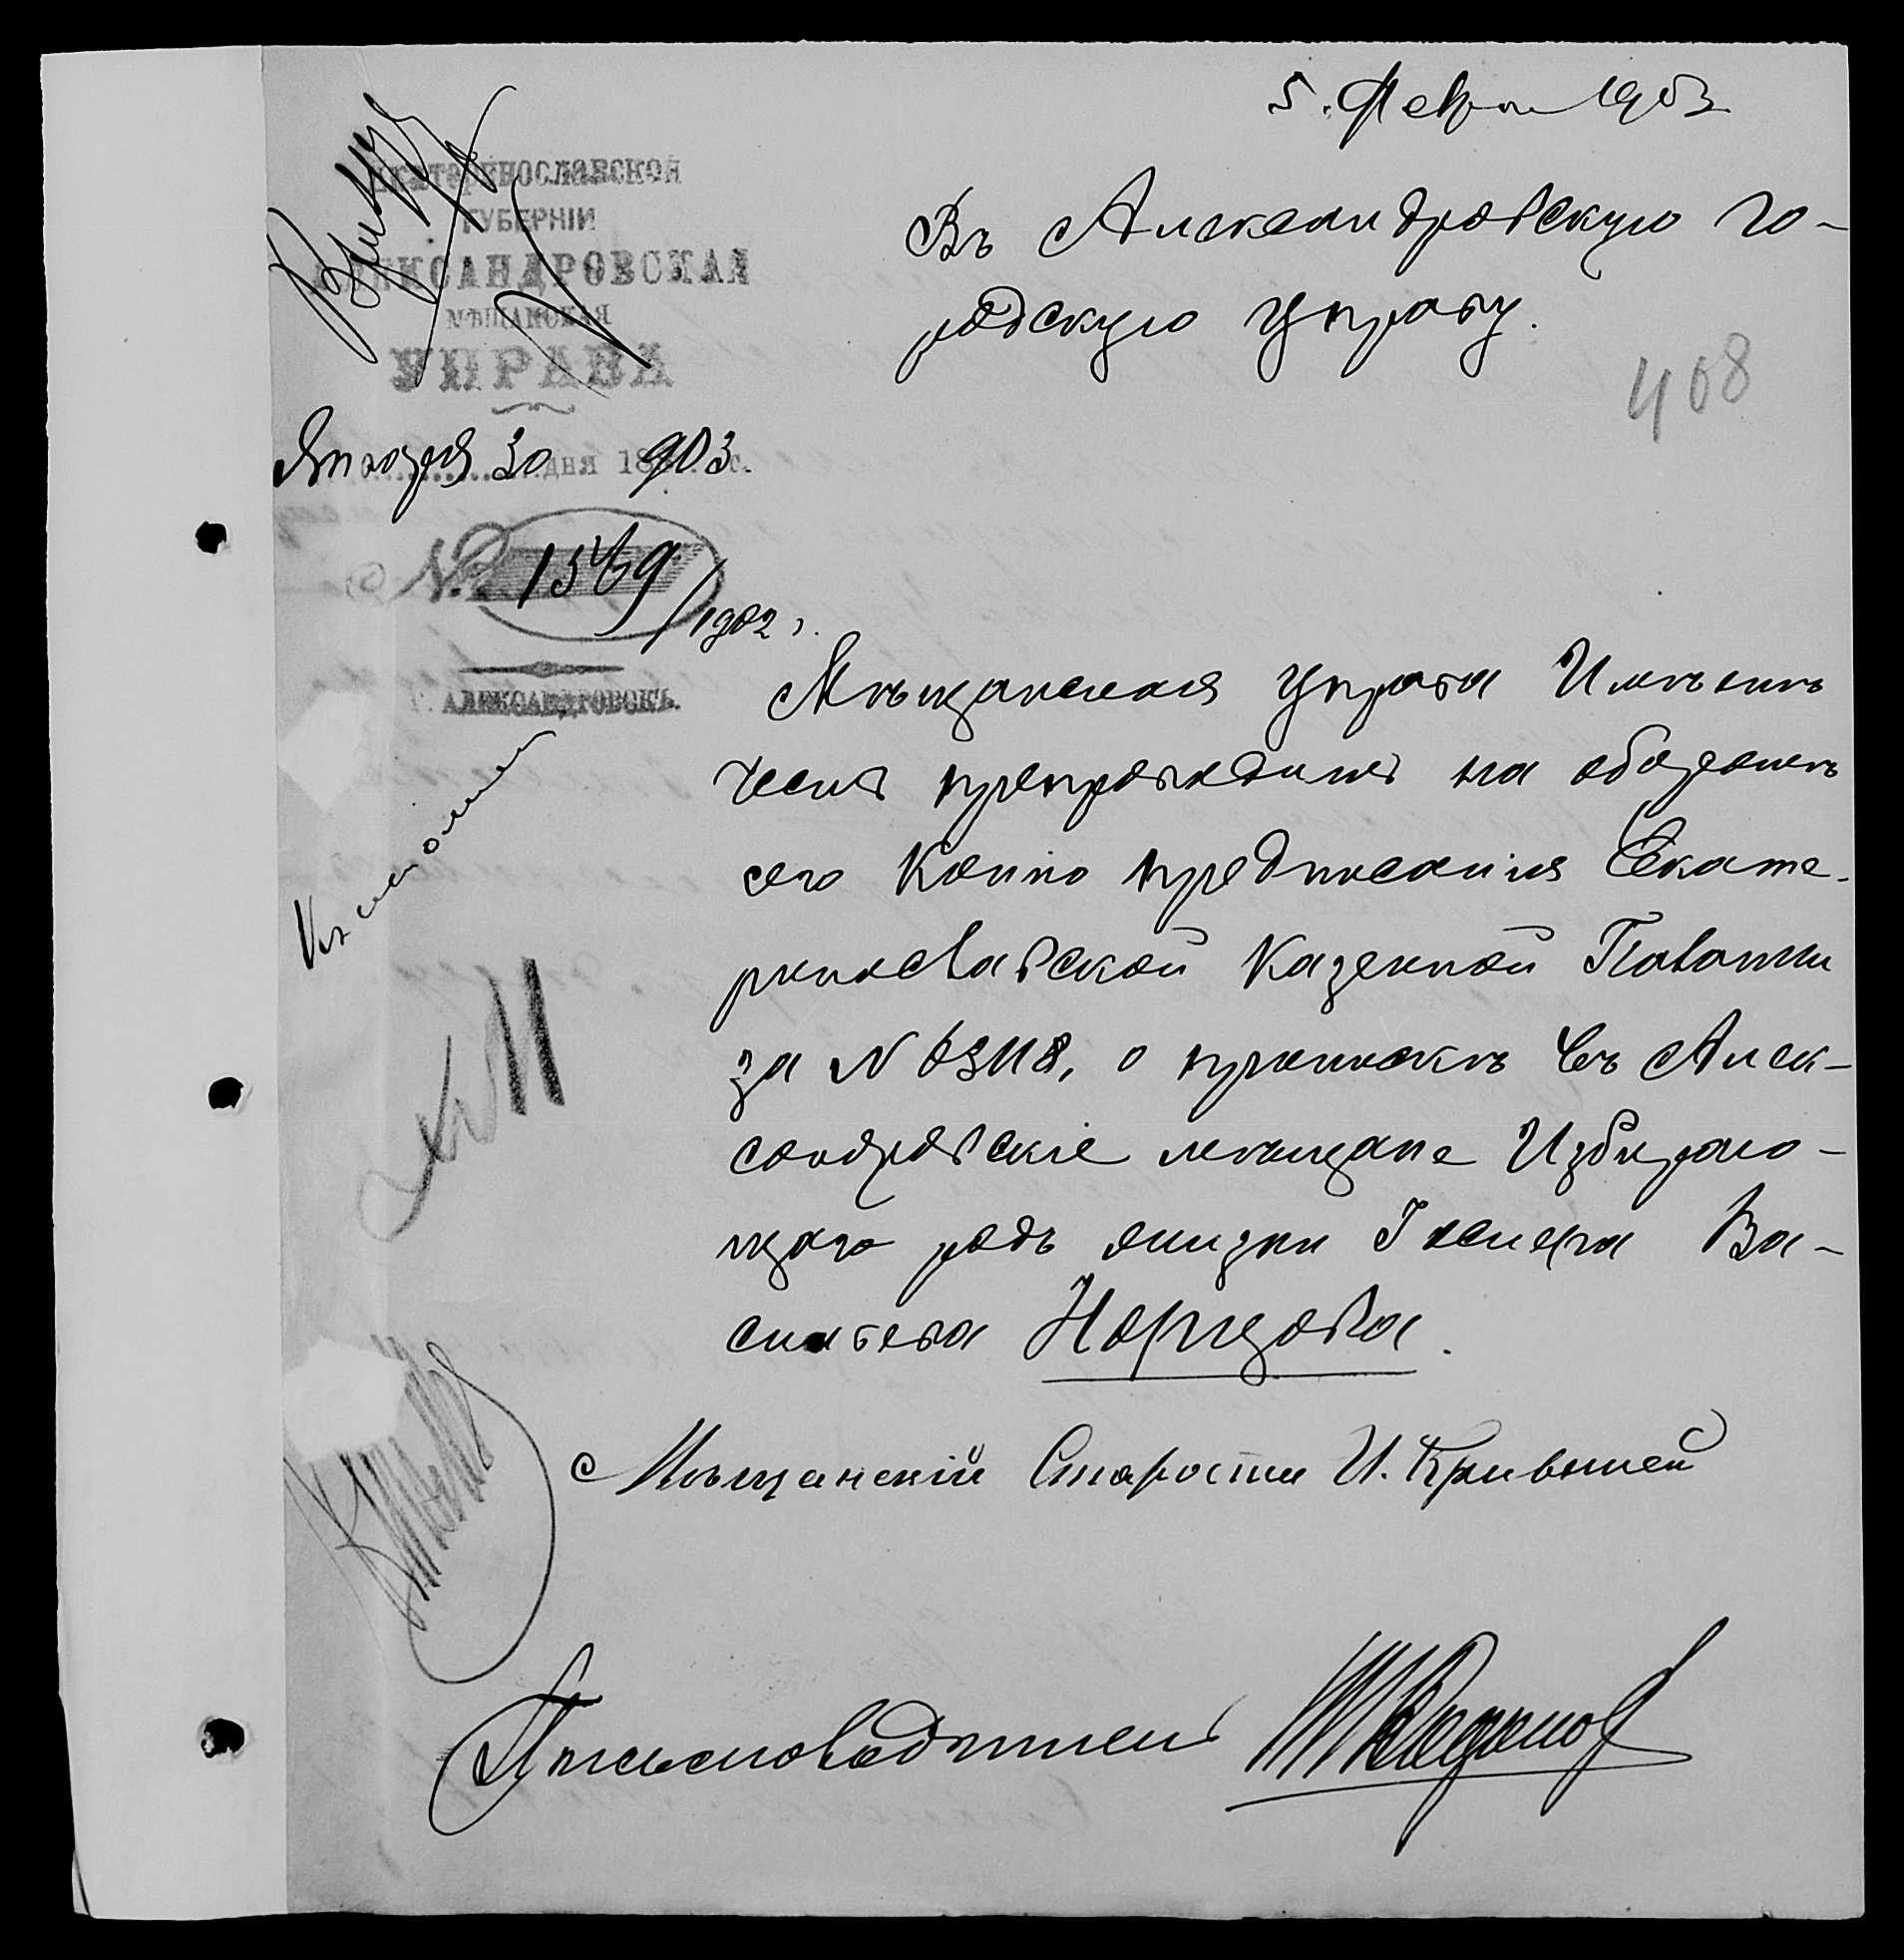 5. Февр 1903
Въ Александровскую го-
родскую Управу.
408
ЕКАТЕРИНОСЛАВСКОЙ
ГУБЕРНІИ
АЛЕКСАНДРОВСКАЯ
МѢЩАНСКАЯ
УПРАВА
Января 30 дня 1903 г.
№ 1569
/1902 г.
Г. АЛЕКСАНДРОВСКЪ.
Мѣщанская Управа Имѣетъ
честь препроводить на оборотѣ
сего копію предписанія Екате-
ринославской Казенной Палаты
за N 63118, о припискѣ въ Алек-
сандровскіе мѣщане Избираю-
щаго родъ жизни Ва-
сильева Норцова.
Мѣщанскій Староста И. Кривошей
Письмоводитель